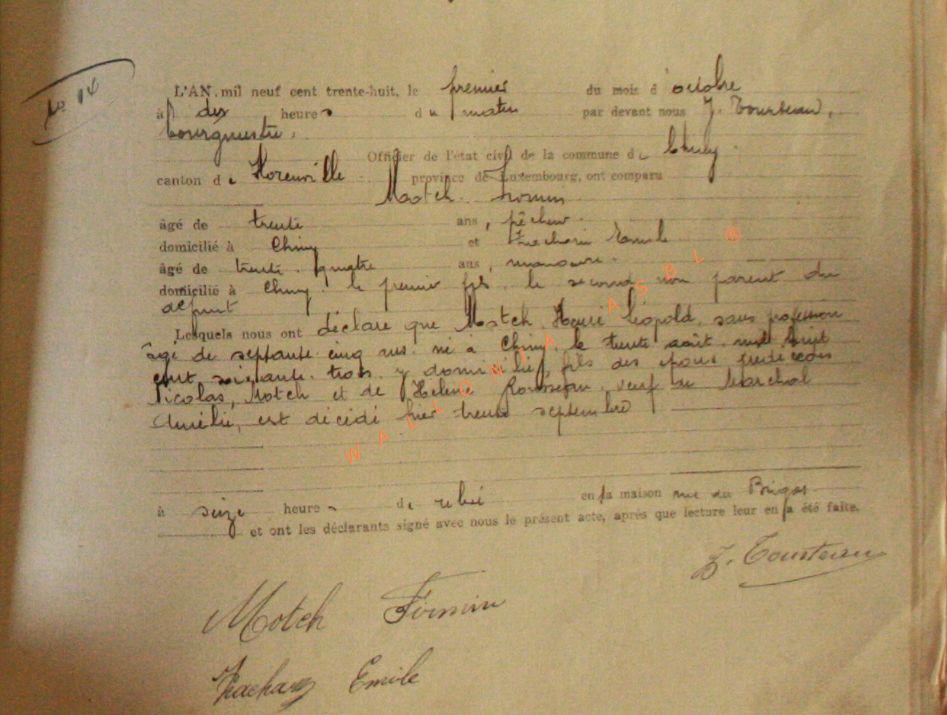 No 14
L'AN mil neuf cent trente-huit, le premier du mois d'octobre
à dix heures du matin par devant nous J. Tourteau,
bourgmestre,
Officier de l'état civil de la commune de Chiny.
canton de Florenville province de Luxembourg, ont comparu
Motch Firmin
âgé de trente ans, pêcheur.
domicilié à Chiny et Zachary Emile
âgé de trente quatre ans, manœuvre.
domicilié à Chiny. le premier fils, le second non parent du
défunt
Lesquels nous ont déclaré que Motch Henri Léopold, sans profession
âgé de septante cinq ans né à Chiny le trente août mil huit
cent soixante trois y domicilié, fils des époux prédécédés
Nicolas, Motch et de Hélène Rousseau, veuf de Maréchal
Amélie, est décédé hier trente septembre
à seize heures de relevé en sa maison rue du
et ont les déclarants signé avec nous le présent acte, après que lecture leur en a été faite.
J. Tourteau
Motch Firmin
Zachary Emile
WALLONIA ASBL ©